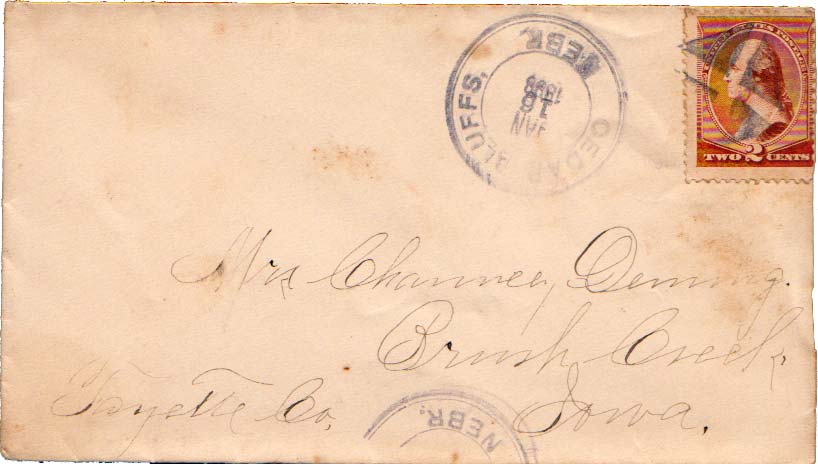 CEDAR BLUFFS, NEBR.
JAN
16
UNITED STATES POSTAGE
TWO 2 CENTS
Mrs Chauncey Deming.
Brush Creek,
Fayette Co,
Iowa.
NEBR.